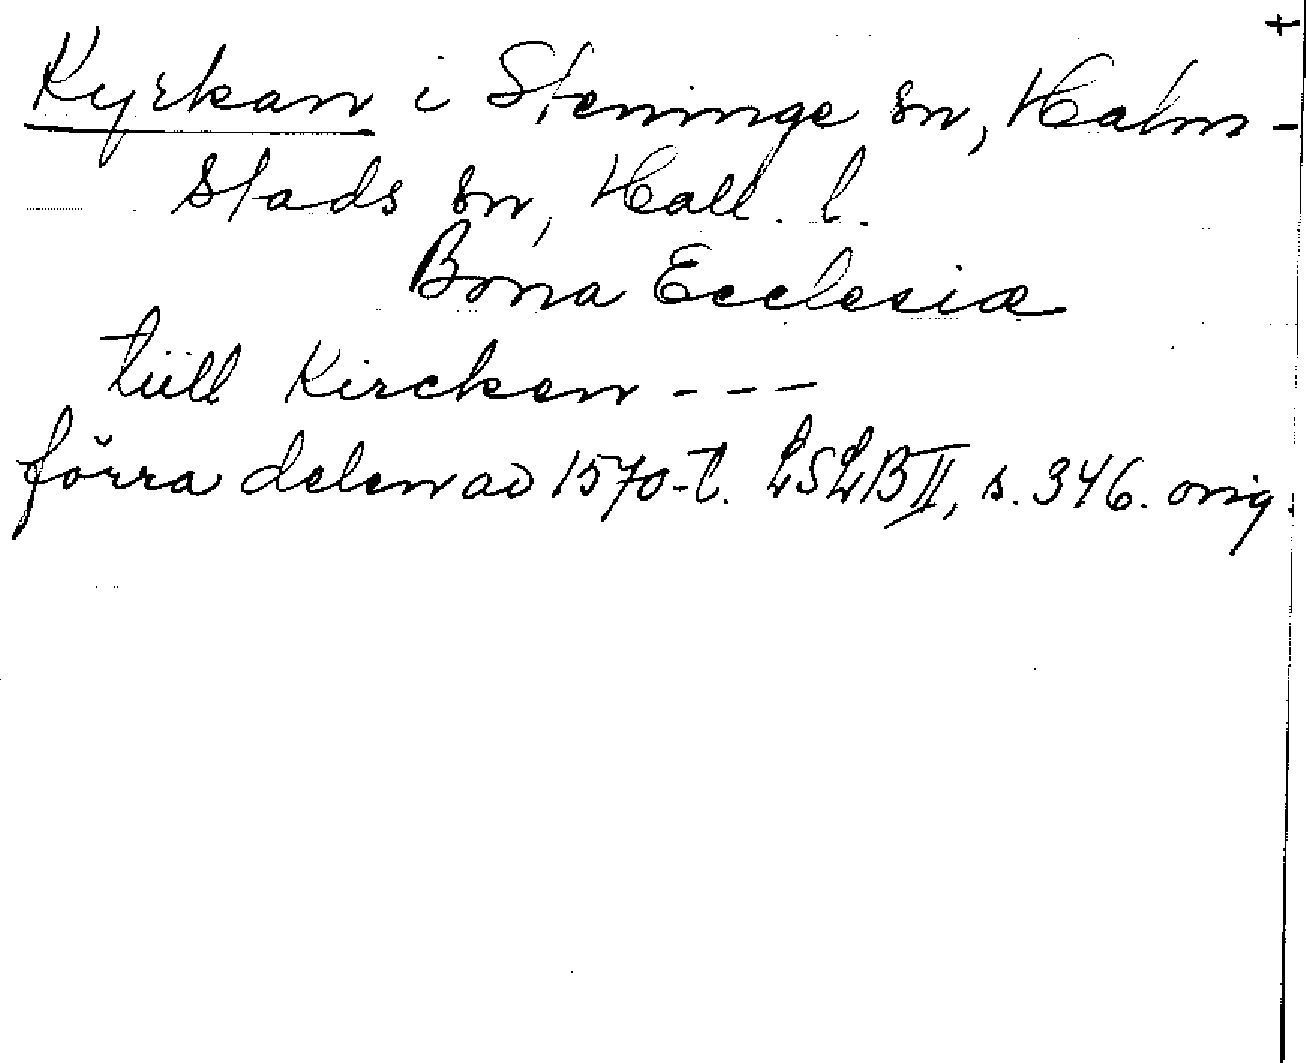 †
Kyrkan i Steninge sn, Halm-
stads sn, Hall. l.
Bona Ecclesiæ
tiill Kircken - - -
förra delen av 1570-t. LSLB II, s. 346. orig.